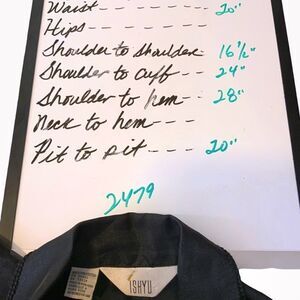 Waist - - - - - - - - 20"
Hips - - - - - -
Shoulder to shoulder - 16 1/2"
Shoulder to cuff - - - - 24"
Shoulder to hem - - - 28"
Neck to hem - - -
Pit to pit - - - - 20"
2479
ISHYU